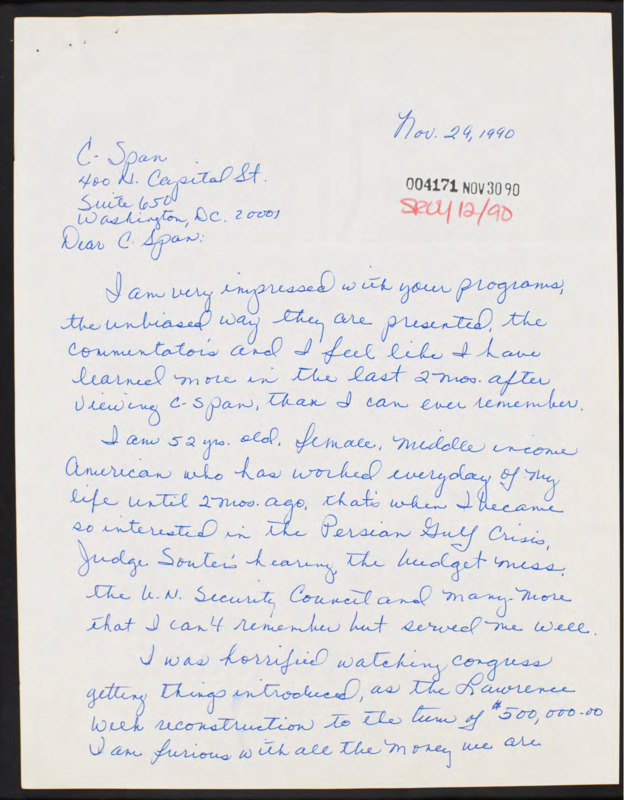 Nov. 29, 1990
C-Span
400 N. Capital St.
Suite 650
Washington, DC. 20001
Dear C. Span:
004171 NOV 30 90
12/90
I am very impressed with your programs,
the unbiased way they are presented, the
commentators and I feel like I have
learned more in the last 2 mos. after
viewing C-Span, than I can ever remember.
I am 52 yrs. old, female, middle income
American who has worked everyday of my
life until 2 mos. ago, that's when I became
so interested in the Persian Gulf Crisis,
Judge Souter's hearing, the budget mess,
the U.N. Security Council and many more
that I can't remember but served me well.
I was horrified watching congress
getting things introduced, as the Lawrence
Welk reconstruction to the tum of $500,000.00
I am furious with all the money we are